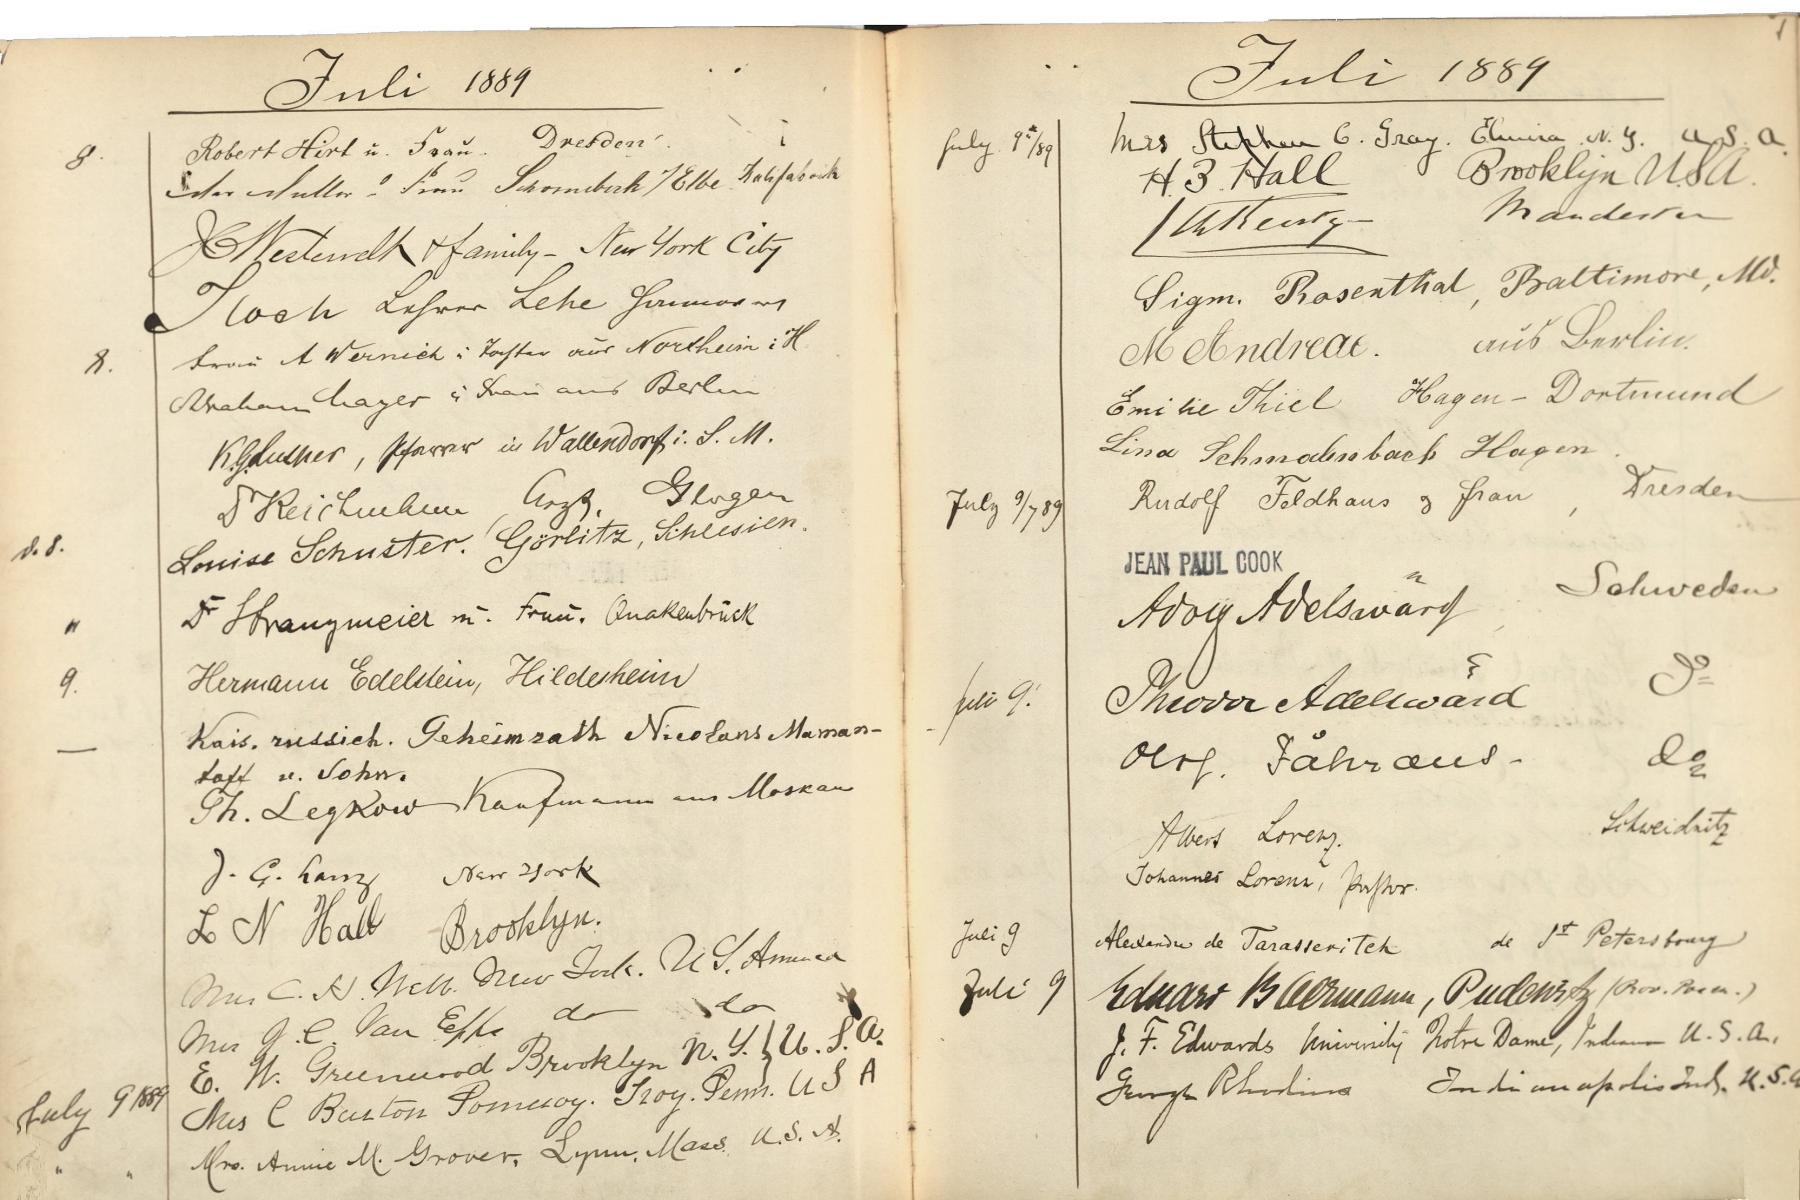 Juli 1889
8.
Robert Hirt u. Frau. Dresden
Frau Schoenebeck / Elbe
Westervelt & family – New York City
Koch Lehrer Lehe Hannover
8.
Frau A Wernich u Tochter aus Northeim i H
Abraham Mayer u Frau aus Berlin
K.G. Luther, Pfarrer in Wallendorf i. S. M.
Dr Arzt, Glogau
d. 8.
Louise Schuster. Görlitz, Schlesien.
"
Dr Strangmeier u. Frau. Quakenbrück
9.
Hermann Edelstein, Hildesheim
—
Kais. russich. Geheimrath Nicolaus Maman-
toff u. Sohn.
Th. Legkow Kaufmann aus Moskau
J. G. Lanz New York
L N Hall Brooklyn.
Mrs C. H. Webb. New York. U S. America
Mrs J. C. Van Epps do do
E. W. Greenwood Brooklyn N. Y. } U. S. A.
July 9 1889
Mrs C Burton Pomeroy. Troy. Penn. U S A
" "
Mrs. Annie M. Grover, Lynn, Mass. U. S. A.
Juli 1889
July 9th/89
Mrs Stephen C. Gray. Elmira N. Y. U. S. A.
H. B. Hall Brooklyn U.S.A.
Manchester
Sigm. Rosenthal, Baltimore, Md.
M Andreae. aus Berlin.
Emilie Thiel Hagen – Dortmund
Lina Schmalenbach Hagen.
July 9/7 89
Rudolf Feldhaus & Frau, Dresden
JEAN PAUL COOK
Adolf Adelswärd Schweden
Juli 9.
Theodor Adelswärd Do
Olof. Fåhraeus – Do
Albert Lorenz. Schweidnitz
Johannes Lorenz, Pastor.
Juli 9
Alexandre de Tarassevitch de St Petersbourg
Juli 9
Eduard Baermann, Pudewitz (Prov. Posen.)
J. F. Edwards University Notre Dame, Indiana U. S. A.
George Rhodius Indianapolis Ind. U. S. A